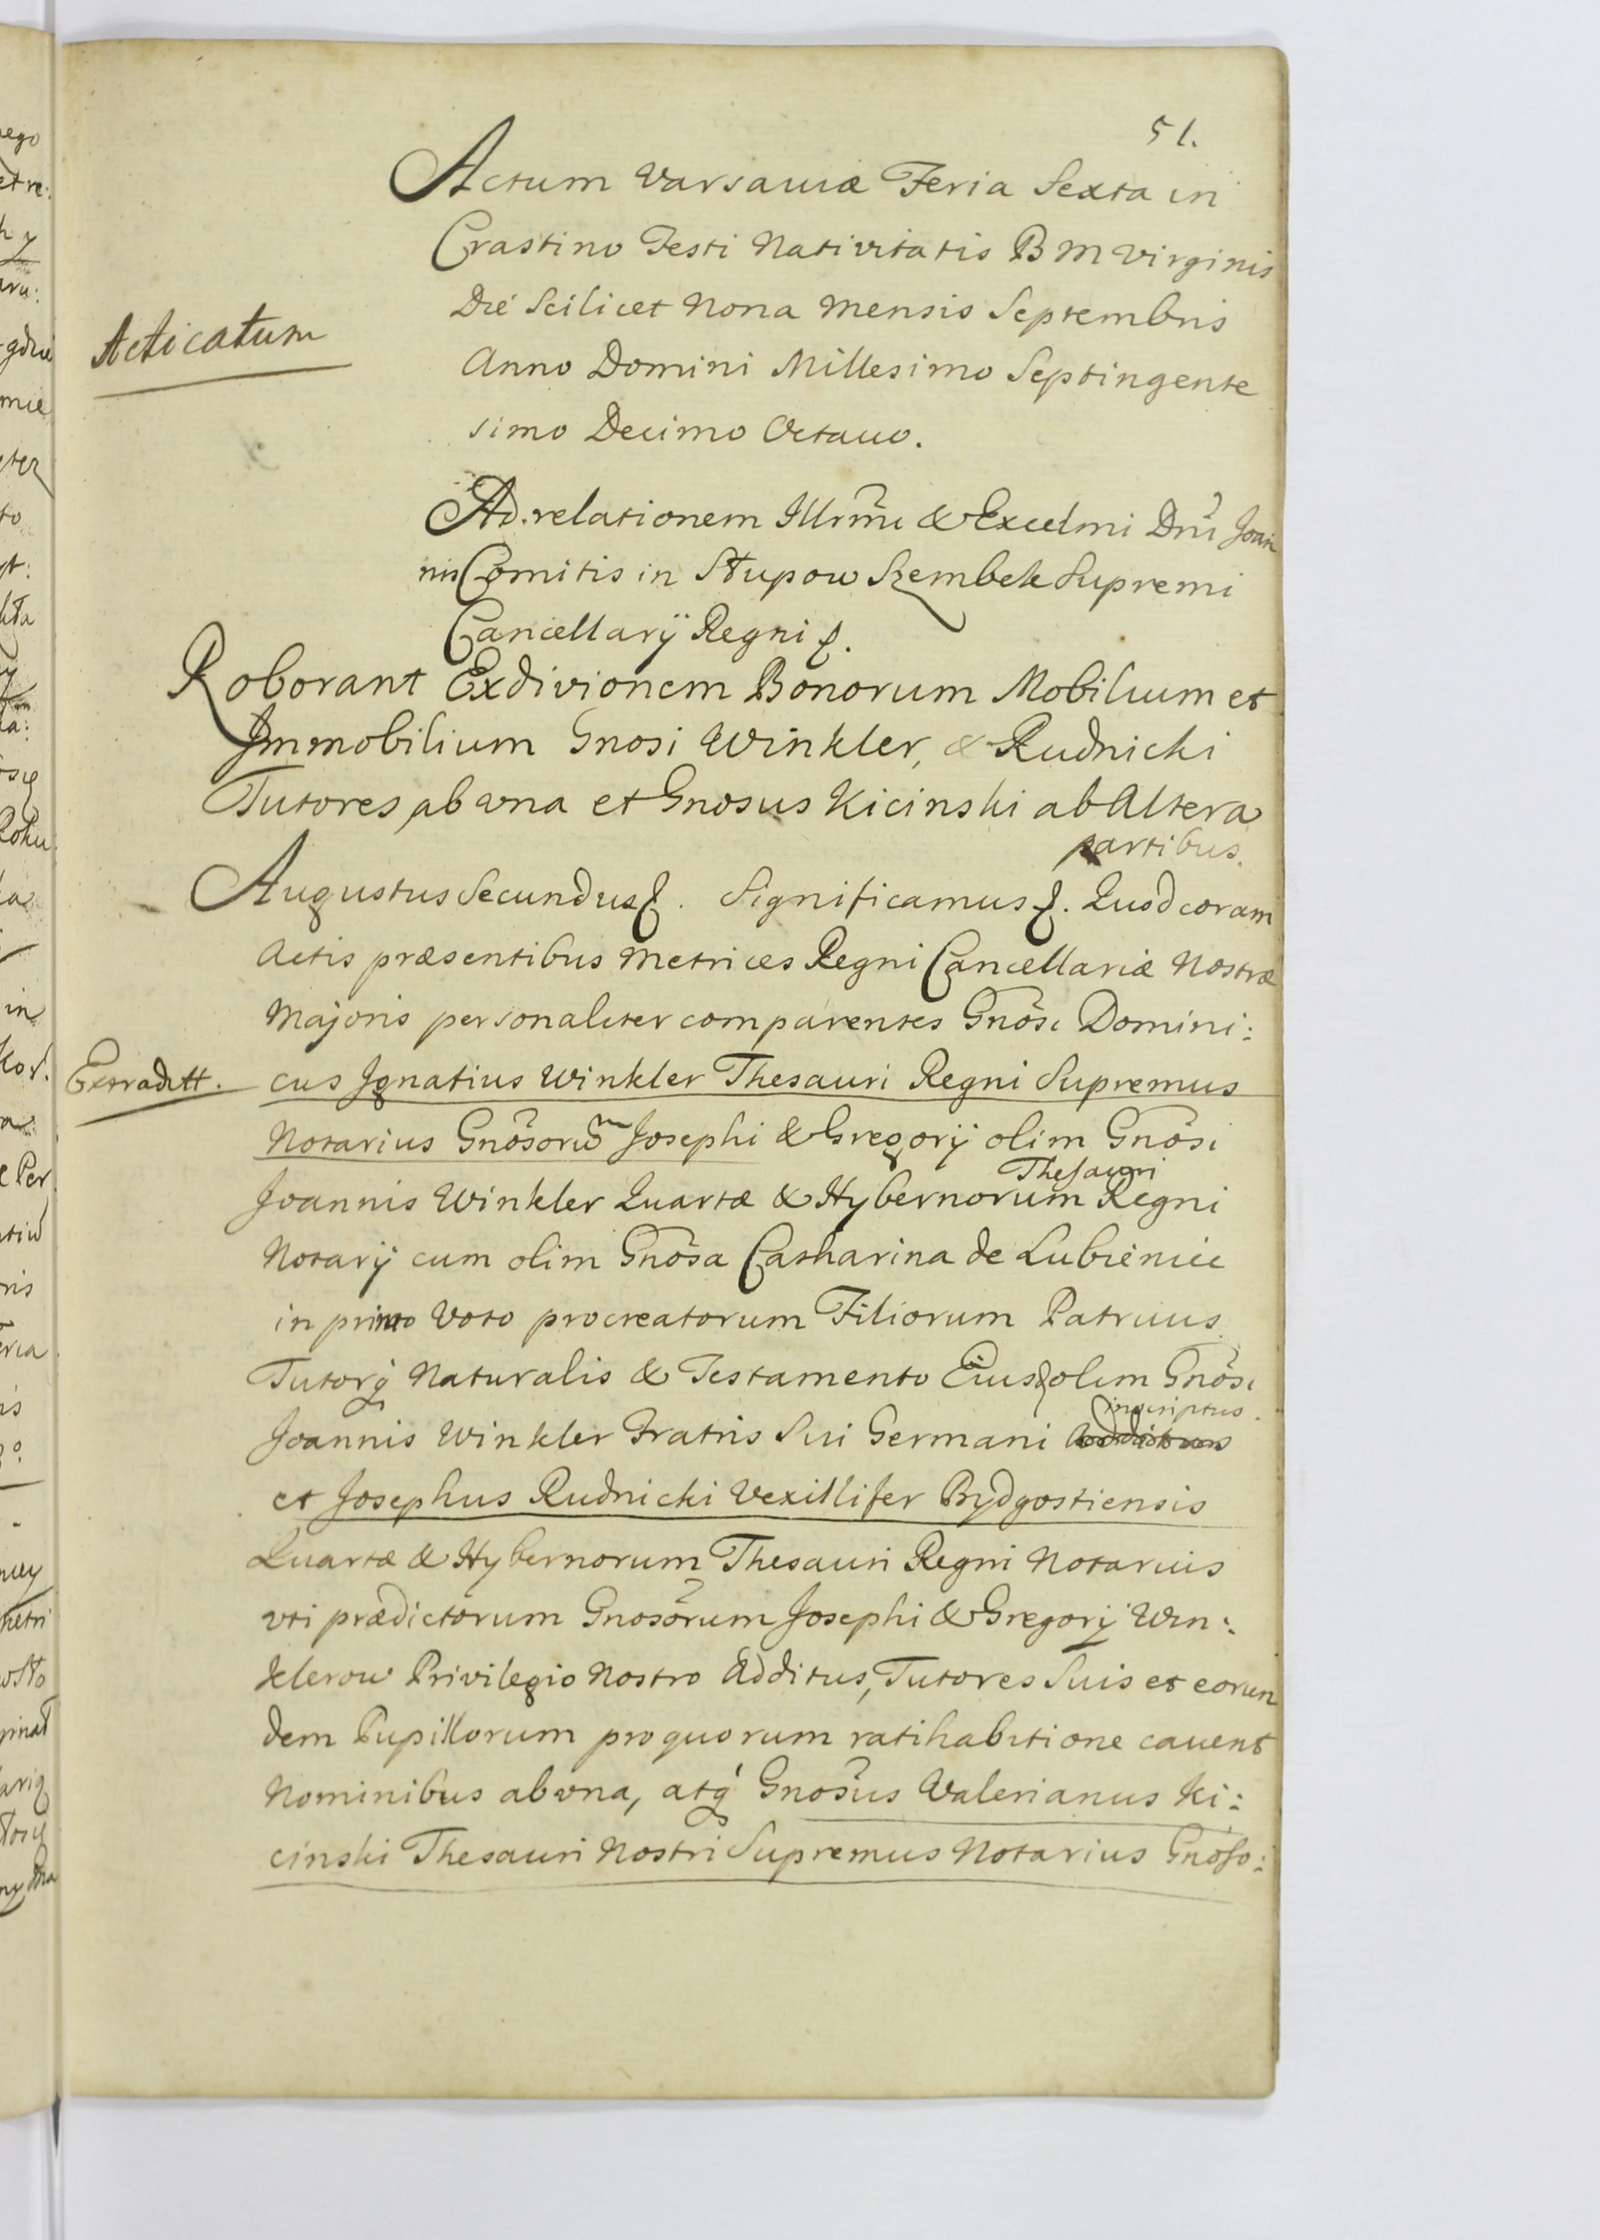 51.
Actum Varsaviæ Feria Sexta in
Crastino Festi Nativitatis B M Virginis
Die Scilicet Nona Mensis Septembris
Acticatum
Anno Domini Millesimo Septingente
simo Decimo Octauo.
Ad relationem Illrmi & Excelmi Dni Joan
nis Comitis in Słupow Szembek Supremi
Cancellarij Regni &.
Roborant Exdivionem Bonorum Mobilium et
Immobilium Gnosi Winkler, & Rudnicki
Tutores ab vna et Gnosus Kicinski ab Altera
partibus.
Augustus Secundus &. Significamus &. Quod coram
Actis præsentibus Metrices Regni Cancellariæ Nostræ
Majoris personaliter comparentes Gnosi Domini:
Extraditt.
cus Ignatius Winkler Thesauri Regni Supremus
Notarius Gnosorum Josephi & Gregorij olim Gnosi
Thesauri
Joannis Winkler Quartæ & Hybernorum Regni
Notarij cum olim Gnosa Catharina de Lubieniec
in primo Voto procreatorum Filiorum Patruus
Tutorq Naturalis & Testamento Eiusd olim Gnosi
inscriptus.
Joannis Winkler Fratris Sui Germani Additus
et Josephus Rudnicki Vexillifer Bydgostiensis
Quartæ & Hybernorum Thesauri Regni Notarius
vti prædictorum Gnosorum Josephi & Gregorij Win:
klerow Privilegio Nostro Additus, Tutores Suis et eorun
dem Pupillorum pro quorum ratihabitione cauent
Nominibus ab vna, atq Gnosus Valerianus Ki:
cinski Thesauri Nostri Supremus Notarius Gnoso: